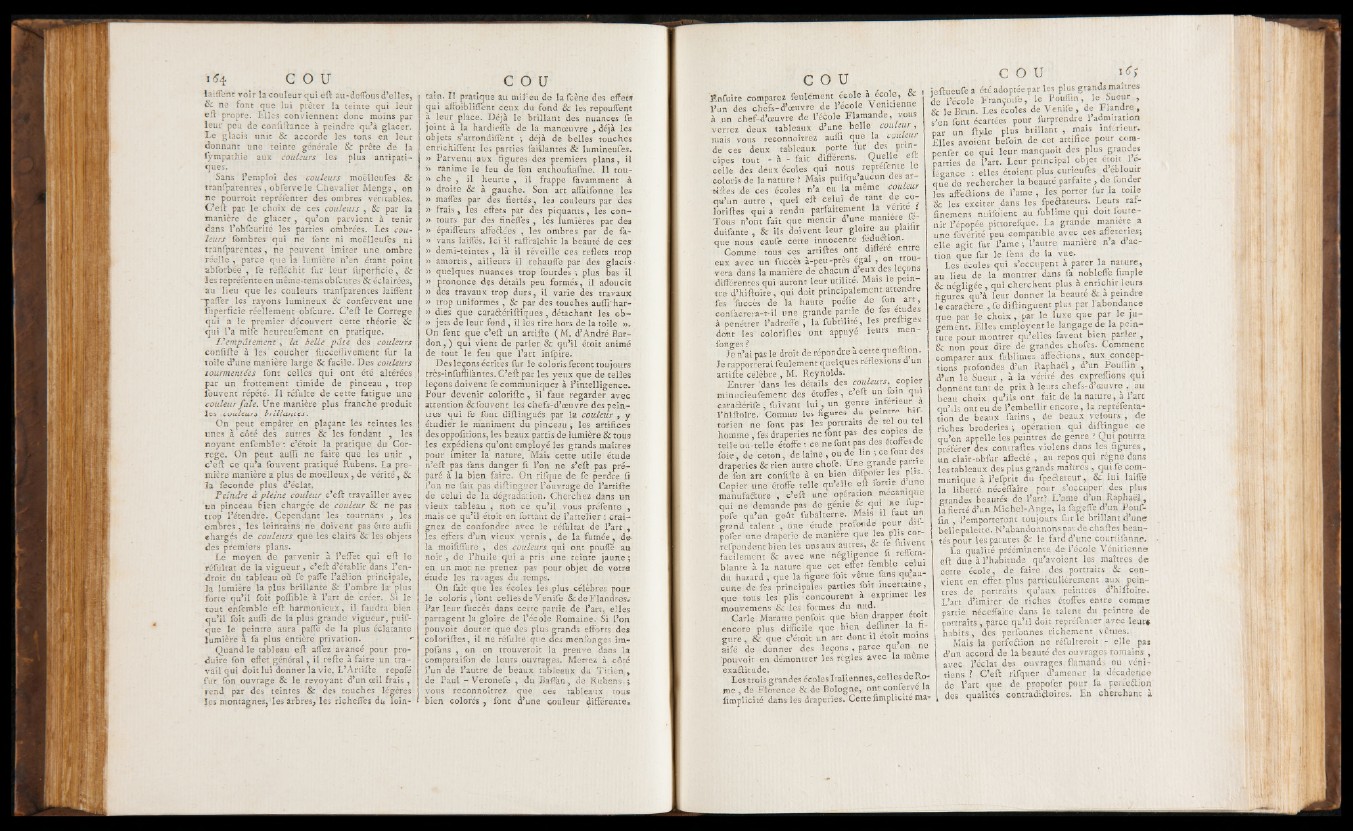 164 C O U
laiſſent voir la couleur qui eſt au-deſſous d'elles,
& ne font que lui prêter la teinte qui leur
eſt propre. Elles conviennent donc moins par
leur peu de conſiſtance à peindre qu'à glacer.
Le glacis unit & accorde les tons en leur
donnant une teinte générale & prête de la
ſympathie aux couleurs les plus antipati-
ques.
Sans l'emploi des couleurs moëlleuſes &
tranſparentes, obſerve le Chevalier Mengs, on
ne pourroit repréſenter des ombres véritables.
C'eſt par le choix de ces couleurs, & par la
manière de glacer, qu'on parvient à tenir
dans l'obſcurité les parties ombrées. Les cou-
leurs ſombres qui ne ſont ni moëlleuſes ni
tranſparentes, ne peuvent imiter une ombre
réelle, parce que la lumière n'en étant point
abſorbée, ſe réfléchit ſur leur ſuperficie, &
les repréſente en même-tems obſcures & éclairées,
au lieu que les couleurs tranſparentes laiſſent
paſſer les rayons lumineux & conſervent une
ſuperficie réellement obſcure. C'eſt le Correge
qui a le premier découvert cette théorie &
qui l'a miſe heureuſement en pratique.
L'empâtement, la belle pâte des couleurs
conſiſte à les coucher ſucceſſivement ſur la
toile d'une manière large & facile. Des couleurs
tourmentées ſont celles qui ont été altérées
par un frottement timide de pinceau, trop
ſouvent répété. Il réſulte de cette fatigue une
couleur ſale. Une manière plus franche produit
les couleurs brillantes.
On peut empâter en plaçant les teintes les
unes à côté des autres & les fondant, les
noyant enſemble : c'étoit la pratique du Cor-
rege. On peut auſſi ne faire que les unir,
c'eſt ce qu'a ſouvent pratiqué Rubens. La pre-
mière manière a plus de moelleux, de vérité, &
la ſeconde plus d'éclat.
Peindre à pleine couleur c'eſt travailler avec
un pinceau bien chargée de couleur & ne pas
trop l'étendre. Cependant les tournans, les
ombres, les lointains ne doivent pas être auſſi
chargés de couleurs que les clairs & les objets
des premiers plans.
Le moyen de parvenir à l'effet qui eſt le
réſultat de la vigueur, c'eſt d'établir dans l'en-
droit du tableau où ſe paſſe l'action principale,
la lumière la plus brillante & l'ombre la plus
forte qu'il ſoit poſſible à l'art de créer. Si le
tout enſemble eſt harmonieux, il faudra bien
qu'il ſoit auſſi de la plus grande vigueur, puiſ-
que le peintre aura paſſé de la plus éclatante
lumière à ſa plus entière privation.
Quand le tableau eſt aſſez avancé pour pro-
duire ſon effet général, il reſte à faire un tra-
vail qui doit lui donner la vie. L'Artiſte repoſé
ſur ſon ouvrage & le revoyant d'un œil frais,
rend par des teintes & des touches légères
les montagnes, les arbres, les richeſſes du loin-
C O U
tain. Il pratique au milieu de la ſcène des effets
qui affoibliſſent ceux du fond & les repouſſent
à leur place. Déjà le brillant des nuances ſe
joint à la hardieſſe de la manœuvre, déjà les
objets s'arrondiſſent ; déjà de belles touches
enrichiſſent les parties ſaillantes & lumineuſes.
» Parvenu aux figures des premiers plans, il
» ranime le feu de ſon enthouſiaſme. Il tou-
» che, il heurte, il frappe ſavamment à
» droite & à gauche. Son art aſſaiſonne les
» maſſes par des fiertés, les couleurs par des
» frais, les effets par des piquans, les con-
» tours par des fineſſes, les lumières par des
» épaiſſeurs affectées, les ombres par de ſa-
» vans laiſſés. Ici il raffraîchit la beauté de ces
» demi-teintes, là il réveille ces reflets trop
» amortis, ailleurs il rehauſſe par des glacis
» quelques nuances trop lourdes ; plus bas il
» prononce des détails peu formés, il adoucit
» des travaux trop durs, il varie des travaux
» trop uniformes, & par des touches auſſi har-
» dies que caractériſtiques, détachant les ob-
» jets de leur fond, il les tire hors de la toile ».
On ſent que c'eſt un artiſte (M. d'André Bar-
don,) qui vient de parler & qu'il étoit animé
de tout le feu que l'art inſpire.
Des leçons écrites ſur le coloris ſeront toujours
très-inſuffiſantes. C'eſt par les yeux que de telles
leçons doivent ſe communiquer à l'intelligence.
Pour devenir coloriſte, il faut regarder avec
attention & ſouvent les chefs-d'œuvre des pein-
tres qui ſe ſont diſtingués par la couleur, y
étudier le maniment du pinceau, les artifices
des oppoſitions, les beaux partis de lumière & tous
les expédiens qu'ont employé les grands maîtres
pour imiter la nature. Mais cette utile étude
n'eſt pas ſans danger ſi l'on ne s'eſt pas pré-
paré à la bien faire. On riſque de ſe perdre ſi
l'on ne ſait pas diſtinguer l'ouvrage de l'artiſte
de celui de la dégradation. Cherchez dans un
vieux tableau, non ce qu'il vous préſente,
mais ce qu'il étoit en ſortant de l'attelier : crai-
gnez de confondre avec le réſultat de l'art,
les effets d'un vieux vernis, de la fumée, de
la moiſiſſure, des couleurs qui ont pouſſé au
noir, de l'huile qui a pris une teinte jaune ;
en un mot ne prenez pas pour objet de votre
étude les ravages du temps.
On ſait que les écoles les plus célèbres pour
le coloris, ſont celles de Veniſe & de Flandres.
Par leur ſuccès dans cette partie de l'art, elles
partagent la gloire de l'école Romaine. Si l'on
pouvoit douter que des plus grands efforts des
coloriſtes, il ne réſulte que des menſonges im-
poſans, on en trouveroit la preuve dans la
comparaiſon de leurs ouvrages. Mettez à côté
l'un de l'autre de beaux tableaux du Titien,
de Paul-Veroneſe, du Baſſan, de Rubens ;
vous reconnoîtrez que ces tableaux tous
bien colorés, ſont d'une couleur différente.
C O U
Enſuite comparez ſeulement école à école, &
l'un des chefs-d'œuvre de l'école Vénitienne
à un chef-d'œuvre de l'école Flamande, vous
verrez deux tableaux d'une belle couleur,
mais vous reconnoîtrez auſſi que la couleur
de ces deux tableaux porte ſur des prin-
cipes tout-à-fait différens. Quelle eſt
celle des deux écoles qui nous repréſente le
coloris de la nature ? Mais puiſqu'aucun des ar-
tiſtes de ces écoles n'a eu la même couleur
qu'un autre, quel eſt celui de tant de co-
loriſtes qui a rendu parfaitement la vérité ?
Tous n'ont fait que mentir d'une manière ſé-
duiſante, & ils doivent leur gloire au plaiſir
que nous cauſe cette innocente ſéduction.
Comme tous ces artiſtes ont différé entre
eux avec un ſuccès à-peu-près égal, on trou-
vera dans la manière de chacun d'eux des leçons
différentes qui auront leur utilité. Mais le pein-
tre d'hiſtoire, qui doit principalement attendre
ſes ſuccès de la haute poéſie de ſon art,
conſacrera-t-il une grande partie de ſes études
à pénétrer l'adreſſe, la ſubtilité, les preſtiges
dont les coloriſtes ont appuyé leurs men-
ſonges ?
Je n'ai pas le droit de répondre à cette queſtion.
Je rapporterai ſeulement quelques réflexions d'un
artiſte célèbre, M. Reynolds.
Entrer dans les détails des couleurs, copier
minucieuſement des étoffes, c'eſt un ſoin qui
caractériſe, ſuivant lui, un genre inférieur à
l'hiſtoire. Comme les figures du peintre hiſ-
torien ne ſont pas les portraits de tel ou tel
homme, ſes draperies ne ſont pas des copies de
telle ou telle étoffe : ce ne ſont pas des étoffes de
ſoie, de coton, de laine, ou de lin ; ce ſont des
draperies & rien autre choſe. Une grande partie
de ſon art conſiſte à en bien diſpoſer les plis.
Copier une étoffe telle qu'elle eſt ſortie d'une
manufacture, c'eſt une opération mécanique
qui ne demande pas de génie & qui ne ſup-
poſe qu'un goût ſubalterne. Mais il faut un
grand talent, une étude profonde pour diſ-
poſer une draperie de manière que les plis cor-
reſpondent bien les uns aux autres, & ſe ſuivent
facilement & avec une négligence ſi reſſem-
blante à la nature que cet effet ſemble celui
du haſard, que la figure ſoit vêtue ſans qu'au-
cune de ſes principales parties ſoit incertaine,
que tous les plis concourent à exprimer les
mouvemens & les formes du nud.
Carle Maratte penſoit que bien drapper étoit
encore plus difficile que bien deſſiner la fi-
gure, & que c'étoit un art dont il étoit moins
aiſé de donner des leçons, parce qu'on ne
pouvoit en démontrer les règles avec la même
exactitude.
Les trois grandes écoles Italiennes, celles de Ro-
me, de Florence & de Bologne, ont conſervé la
ſimplicité dans les draperies. Cette ſimplicité ma-
C O U 165
jeſtueuſe a été adoptée par les plus grands maîtres
de l'école Françoiſe, le Pouſſin, le Sueur,
& le Brun. Les écoles de Veniſe, de Flandre,
s'en ſont écartées pour ſurprendre l'admiration
par un ſtyle plus brillant, mais inférieur.
Elles avoient beſoin de cet artifice pour com-
penſer ce qui leur manquoit des plus grandes
parties de l'art. Leur principal objet étoit l'é-
légance : elles étoient plus curieuſes d'éblouir
que de rechercher la beauté parfaite, de ſonder
les affections de l'ame, les porter ſur la toile
& les exciter dans les ſpectateurs. Leurs raf-
finemens nuiſoient au ſublime qui doit ſoute-
nir l'épopée pittoreſque. La grande manière a
une ſévérité peu compatible avec ces afféteries ;
elle agit ſur l'ame, l'autre manière n'a d'ac-
tion que ſur le ſens de la vue.
Les écoles qui s'occupent à parer la nature,
au lieu de la montrer dans ſa nobleſſe ſimple
& négligée, qui cherchent plus à enrichir leurs
figures qu'à leur donner la beauté & à peindre
le caractère, ſe diſtinguent plus par l'abondance
que par le choix, par le luxe que par le ju-
gement. Elles employent le langage de la pein-
ture pour montrer qu'elles ſavent bien parler,
& non pour dire de grandes choſes. Comment
comparer aux ſublimes affections, aux concep-
tions profondes d'un Raphaël, d'un Pouſſin,
d'un le Sueur, à la vérité des expreſſions qui
donnent tant de prix à leurs chefs-d'œuvre, au
beau choix qu'ils ont fait de la nature, à l'art
qu'ils ont eu de l'embellir encore, la repréſenta-
tion de beaux ſatins, de beaux velours, de
riches broderies ; opération qui diſtingue ce
qu'on appelle les peintres de genre ? Qui pourra
préférer des contraſtes violens dans les figures,
un clair-obſcur affecté, au repos qui règne dans
les tableaux des plus grands maîtres, qui ſe com-
munique à l'eſprit du ſpectateur, & lui laiſſe
la liberté néceſſaire pour s'occuper des plus
grandes beautés de l'art ? L'ame d'un Raphaël,
la fierté d'un Michel-Ange, la ſageſſe d'un Pouſ-
ſin, l'emporteront toujours ſur le brillant d'une
belle palette. N'abandonnons pas de chaſtes beau-
tés pour les parures & le fard d'une courtiſanne.
La qualité prééminente de l'école Vénitienne
eſt due à l'habitude qu'avoient les maîtres de
cette école, de faire des portraits & con-
vient en effet plus particuliérement aux pein-
tres de portraits qu'aux peintres d'hiſtoire.
L'art d'imiter de riches étoffes entre comme
partie néceſſaire dans le talent du peintre de
portraits, parce qu'il doit repréſenter avec leurs
habits, des perſonnes richement vêtues.
Mais la perfection ne réſulteroit-elle pas
d'un accord de la beauté des ouvrages romains,
avec l'éclat des ouvrages flamands ou véni-
tiens ? C'eſt riſquer d'amener la décadence
de l'art que de propoſer pour ſa perfection
des qualités contradictoires. En cherchant à